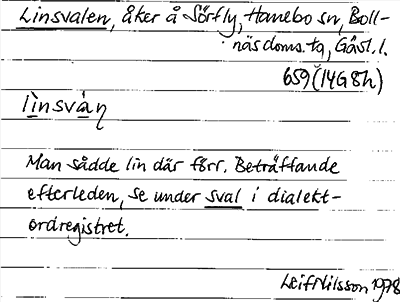 Linsvalen, åker å Sörfly, Hanebo sn, Boll-
näs doms. tg, Gävl. l.
659 (14G8h)
lìnsvàn̥
Man sådde lin där förr. Beträffande
efterleden, se under sval i dialekt-
ordregistret.
Leif Nilsson 1978